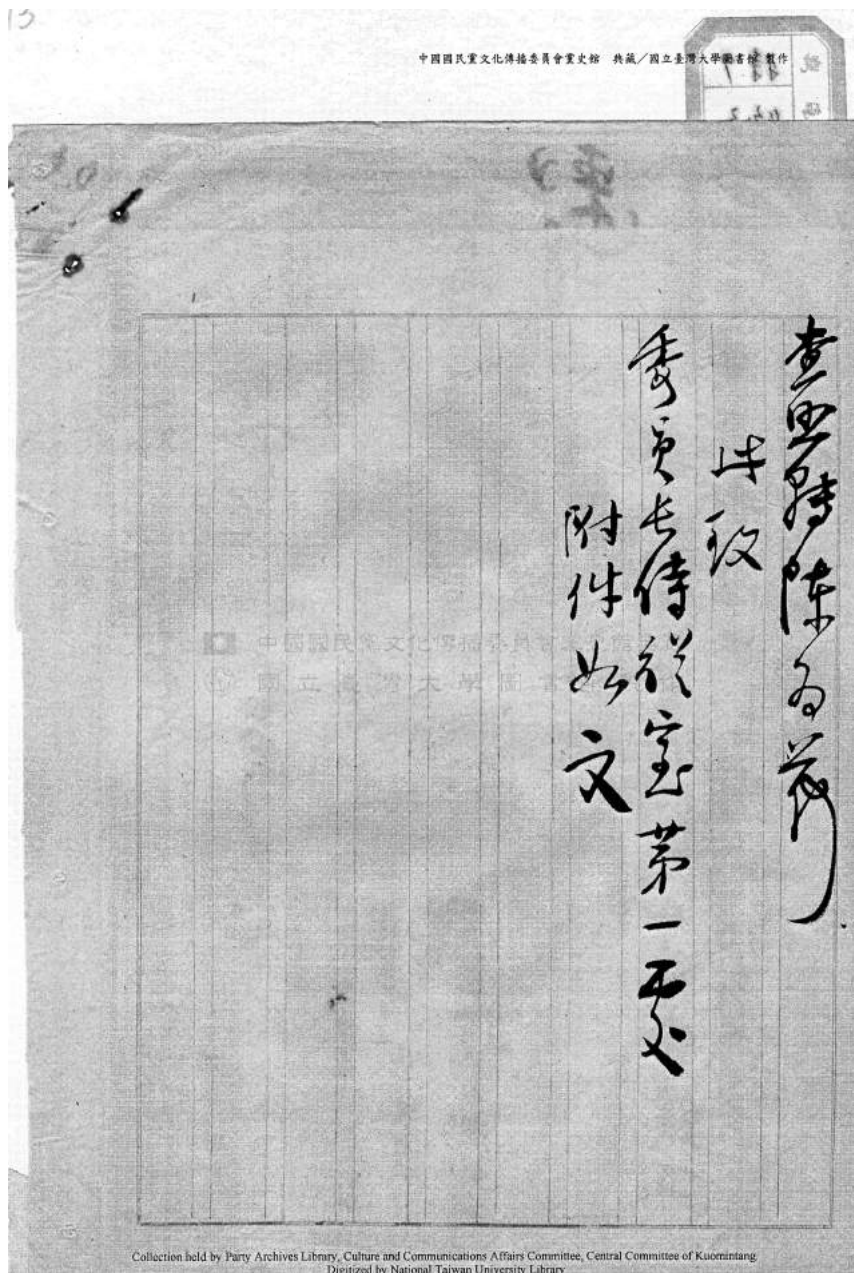 中國國民黨文化傳播委員會黨史館 典藏／國立臺灣大學圖書館 製作
查照轉陳為荷
此致
委員長侍從室第一處
附件如文
中國國民黨文化傳播委員會黨史館
國立臺灣大學圖書
Collection held by Party Archives Library, Culture and Communications Affairs Committee, Central Committee of Kuomintang
Digitized by National Taiwan University Library